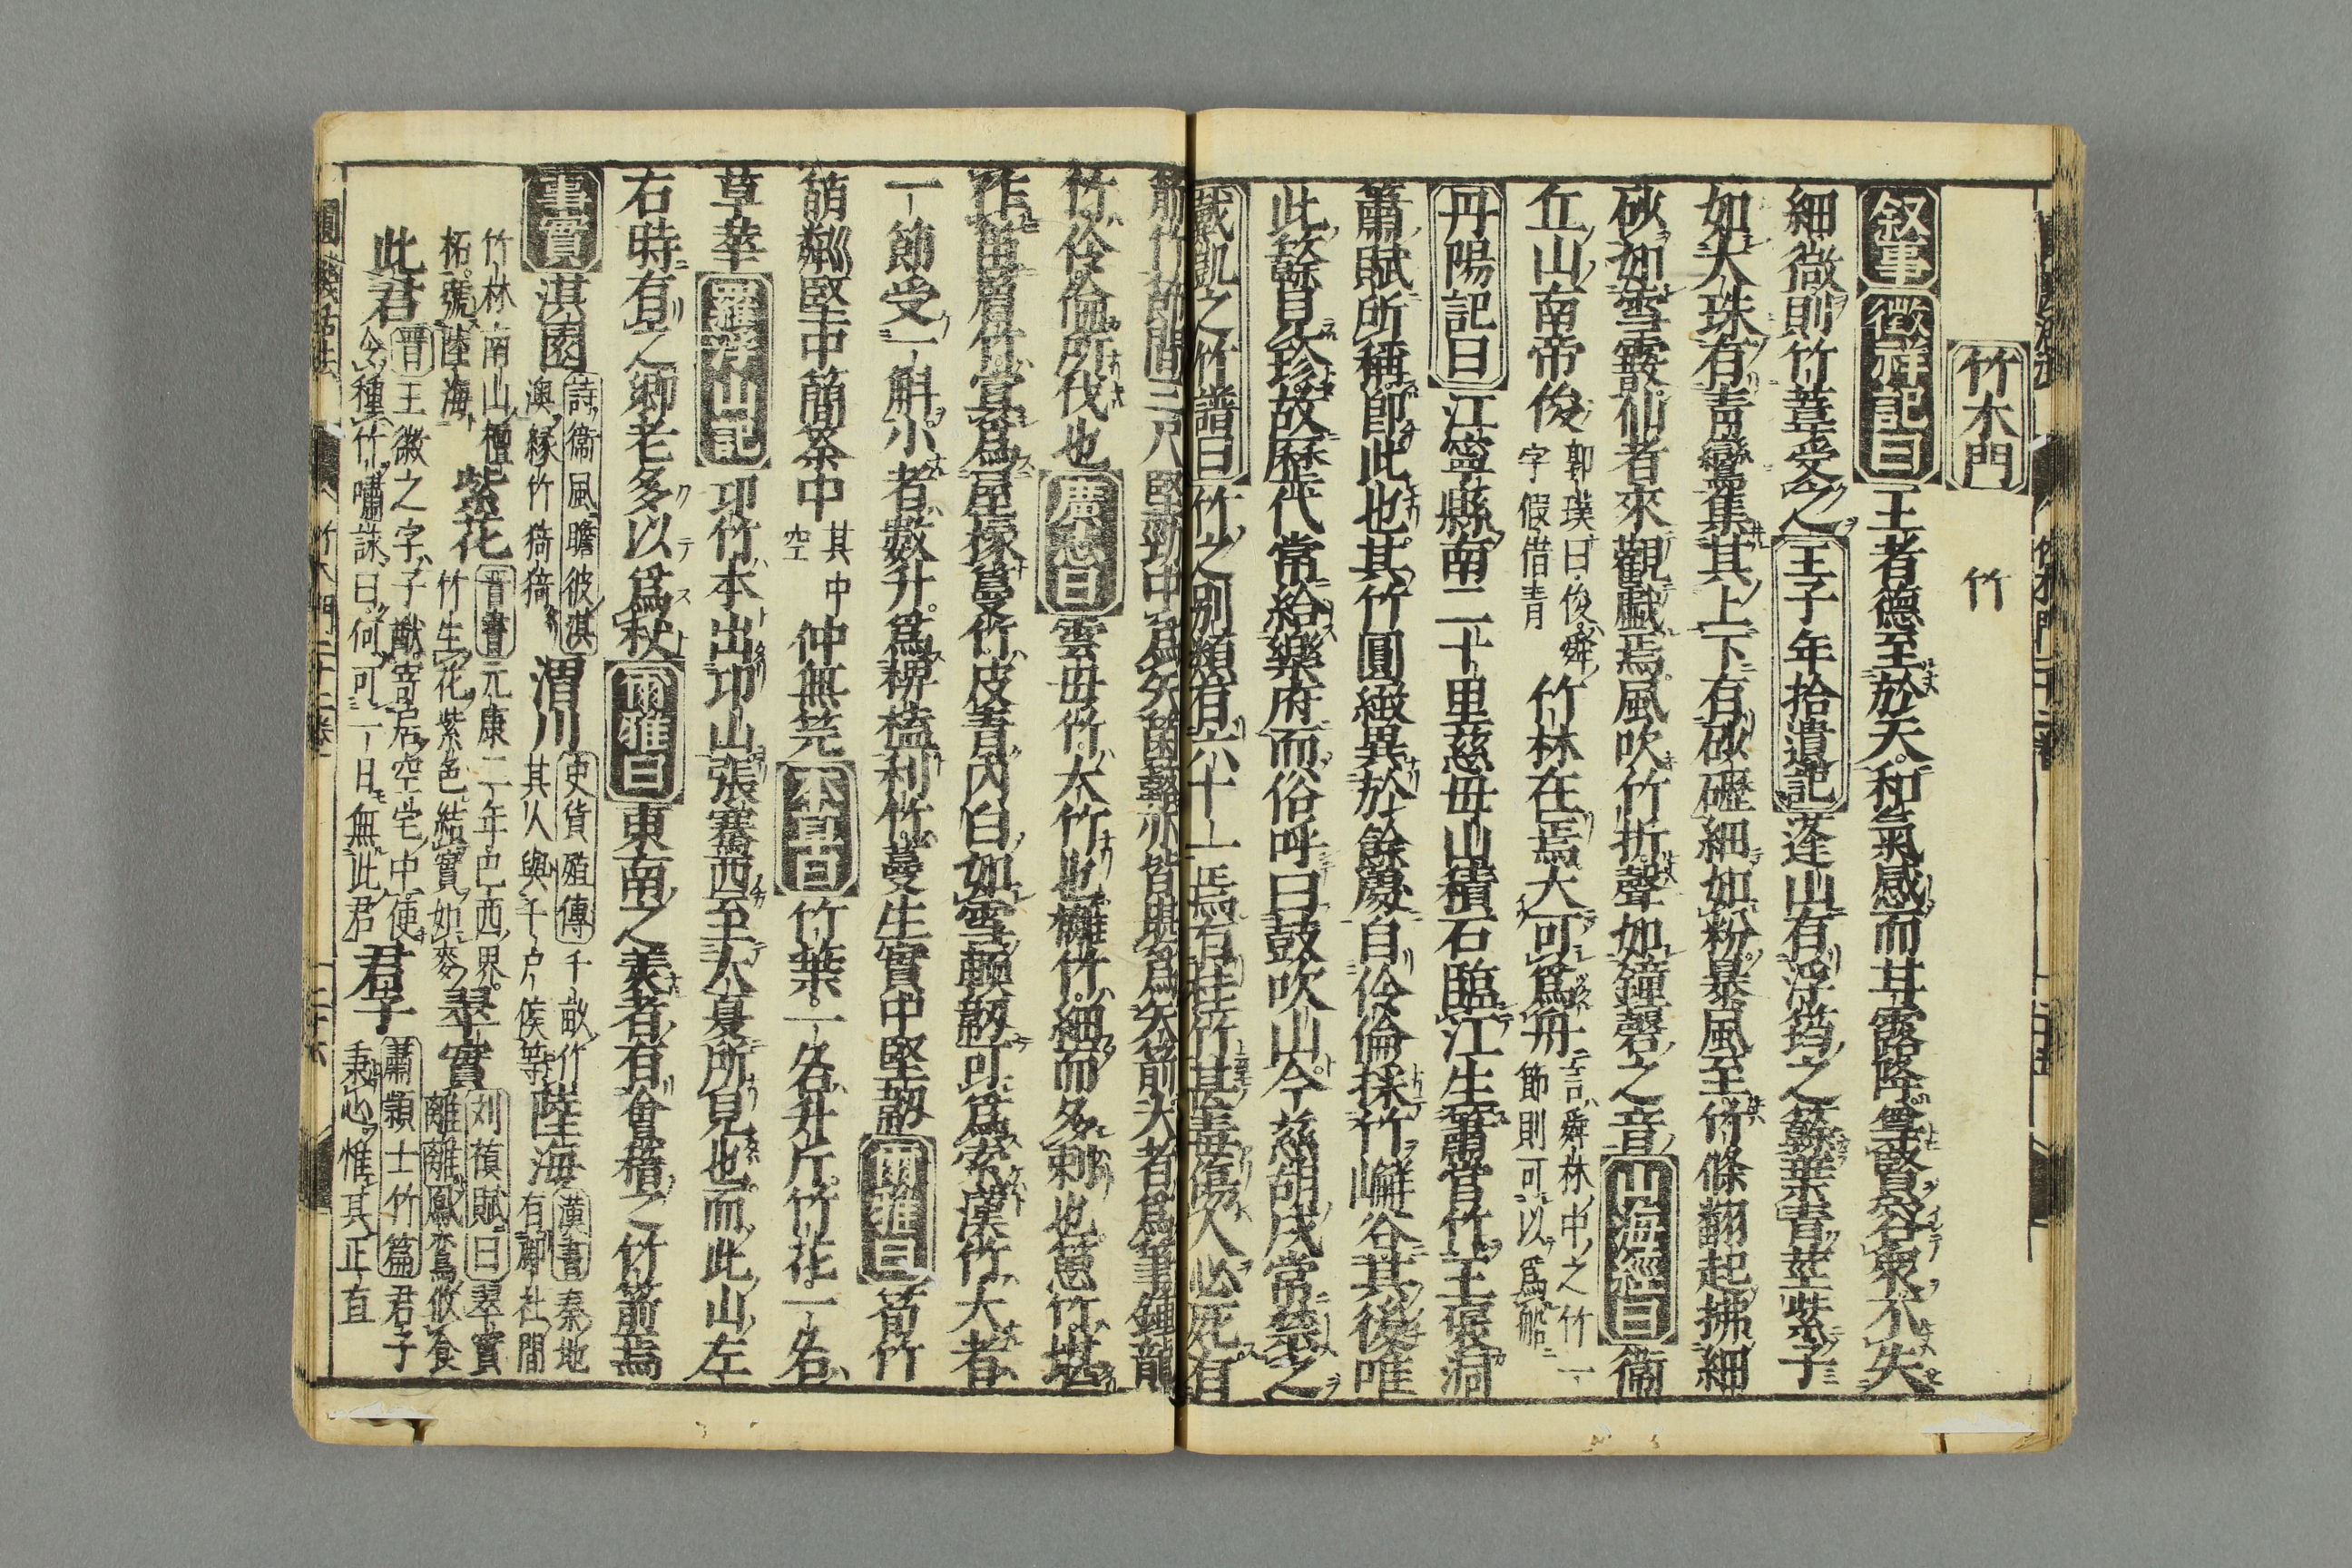 竹木門　竹
叙事 徴祥記曰 王者德至於天和氣感而甘露降尊賢容衆不失
細微則竹葦受之 王子年拾遺記 蓬山有浮筠之簳葉青莖紫子
如大珠有青鸞集其上下有砂礰細如粉暴風至竹條翻起拂細
砂如雪霰仙者來觀戲焉風吹竹折聲如鐘磬之音 山海經曰 衞
丘山南帝俊 郭璞曰俊舜字假借音 竹林在焉大可爲舟 言舜林中之竹一節則可以爲船
丹陽記曰 江寧縣南二十里慈母山積石臨江生簫管竹王褒洞
簫賦所稱即此也其竹圓緻異於餘處自伶倫採竹嶰谷其後唯
此簳見珍故歷代常給樂府而俗呼曰鼓吹山今慈胡戍常禁之
戴凱之竹譜曰 竹之別類有六十一焉有桂竹甚毒傷人必死有
筋竹節間三尺堅勁中爲矢箘簬亦皆堪爲矢箭大者爲筆鍾龍
竹伶倫所伐也 廣志曰 雲母竹大竹也 竹細而多刺也 竹堪
作笛 竹宜爲屋椽 竹皮青内白如雪軟韌可爲索漢竹大者
一節受一斛小者數升爲椑榼利竹蔓生實中堅韌 爾雅曰 筍竹
萌 堅中簡 中 其中空 仲無笐 本草曰 竹葉一名升斤竹花一名
草華 羅浮山記 卭竹本出卭山張騫西至大夏所見也而此山左
右時有之鄉老多以爲杖 爾雅曰 東南之美者有會稽之竹箭焉
事實 淇園 詩衞風瞻彼淇澳緑竹猗猗 渭川 史貨殖傳 千畝竹其人與千户侯等 陸海 漢書 秦地有鄠杜
竹林南山檀柘號陸海 紫花 晋書 元康二年巴西界竹生花紫色結實如麥 翠實 刘楨賦曰 翠實離離鳳鸞攸食
此君 晋王徽之字子猷寄居空宅中使令種竹嘯詠曰何可一日無此君 君子 蕭穎士竹篇 君子秉心惟其正直